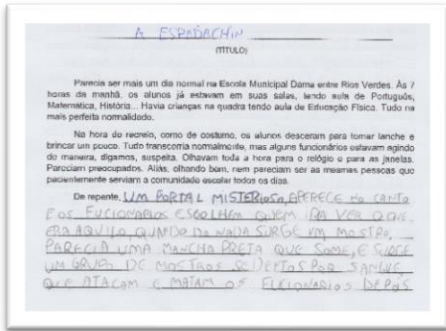 A ESPADACHIN
(TÍTULO)
Parecia ser mais um dia normal na Escola Municipal Dama entre Rios Verdes. Às 7
horas da manhã, os alunos já estavam em suas salas, tendo aula de Português,
Matemática, História... Havia crianças na quadra tendo aula de Educação Física. Tudo na
mais perfeita normalidade.
Na hora do recreio, como de costume, os alunos desceram para tomar lanche e
brincar um pouco. Tudo transcorria normalmente, mas alguns funcionários estavam agindo
de maneira, digamos, suspeita. Olhavam toda a hora para o relógio e para as janelas.
Pareciam preocupados. Aliás, olhando bem, nem pareciam ser as mesmas pessoas que
pacientemente serviam a comunidade escolar todos os dias.
De repente, UM PORTAL MISTERIOSO, APERECE NO CANTO
E OS FUCIONARIOS ESCOLHEM QUEM IRA VER O QUE
ERA AQUILO, QUANDO DO NADA SURGE UM MOSTRO,
PARECIA UMA MANCHA PRETA QUE SOME, E SURGE
UM GRUPO DE MOSTROS SEDENTOS POR SANGUE
QUE ATACAM E MATAM OS FUCIONARIOS DEPOIS